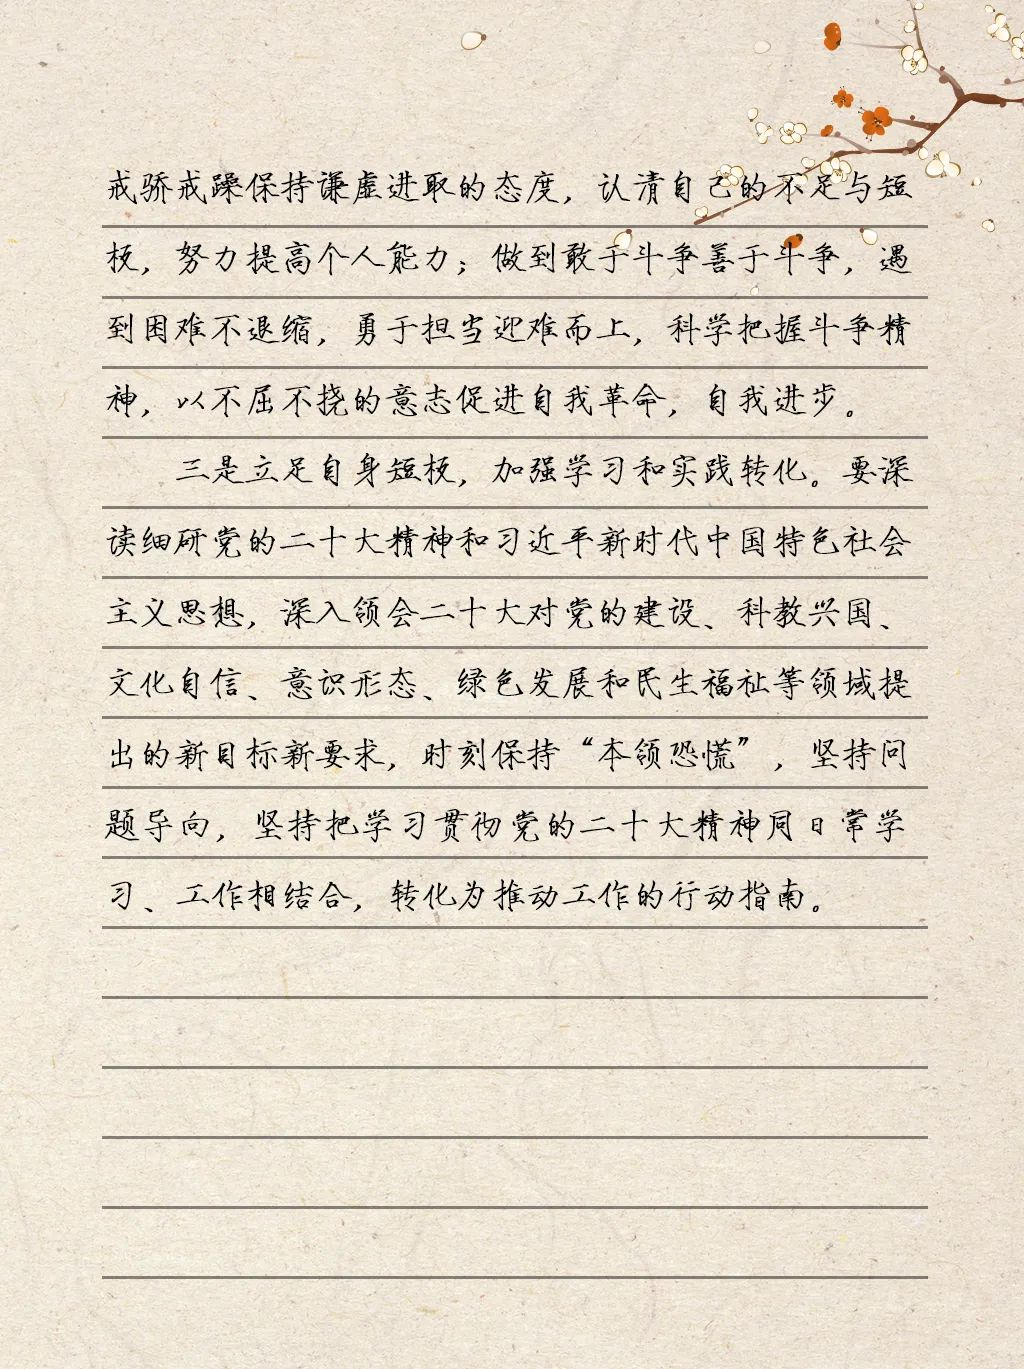 戒骄戒躁保持谦虚进取的态度，认清自己的不足与短
板，努力提高个人能力；做到敢于斗争善于斗争，遇
到困难不退缩，勇于担当迎难而上，科学把握斗争精
神，以不屈不挠的意志促进自我革命，自我进步。
三是立足自身短板，加强学习和实践转化。要深
读细研党的二十大精神和习近平新时代中国特色社会
主义思想，深入领会二十大对党的建设、科教兴国、
文化自信、意识形态、绿色发展和民生福祉等领域提
出的新目标新要求，时刻保持“本领恐慌”，坚持问
题导向，坚持把学习贯彻党的二十大精神同日常学
习、工作相结合，转化为推动工作的行动指南。